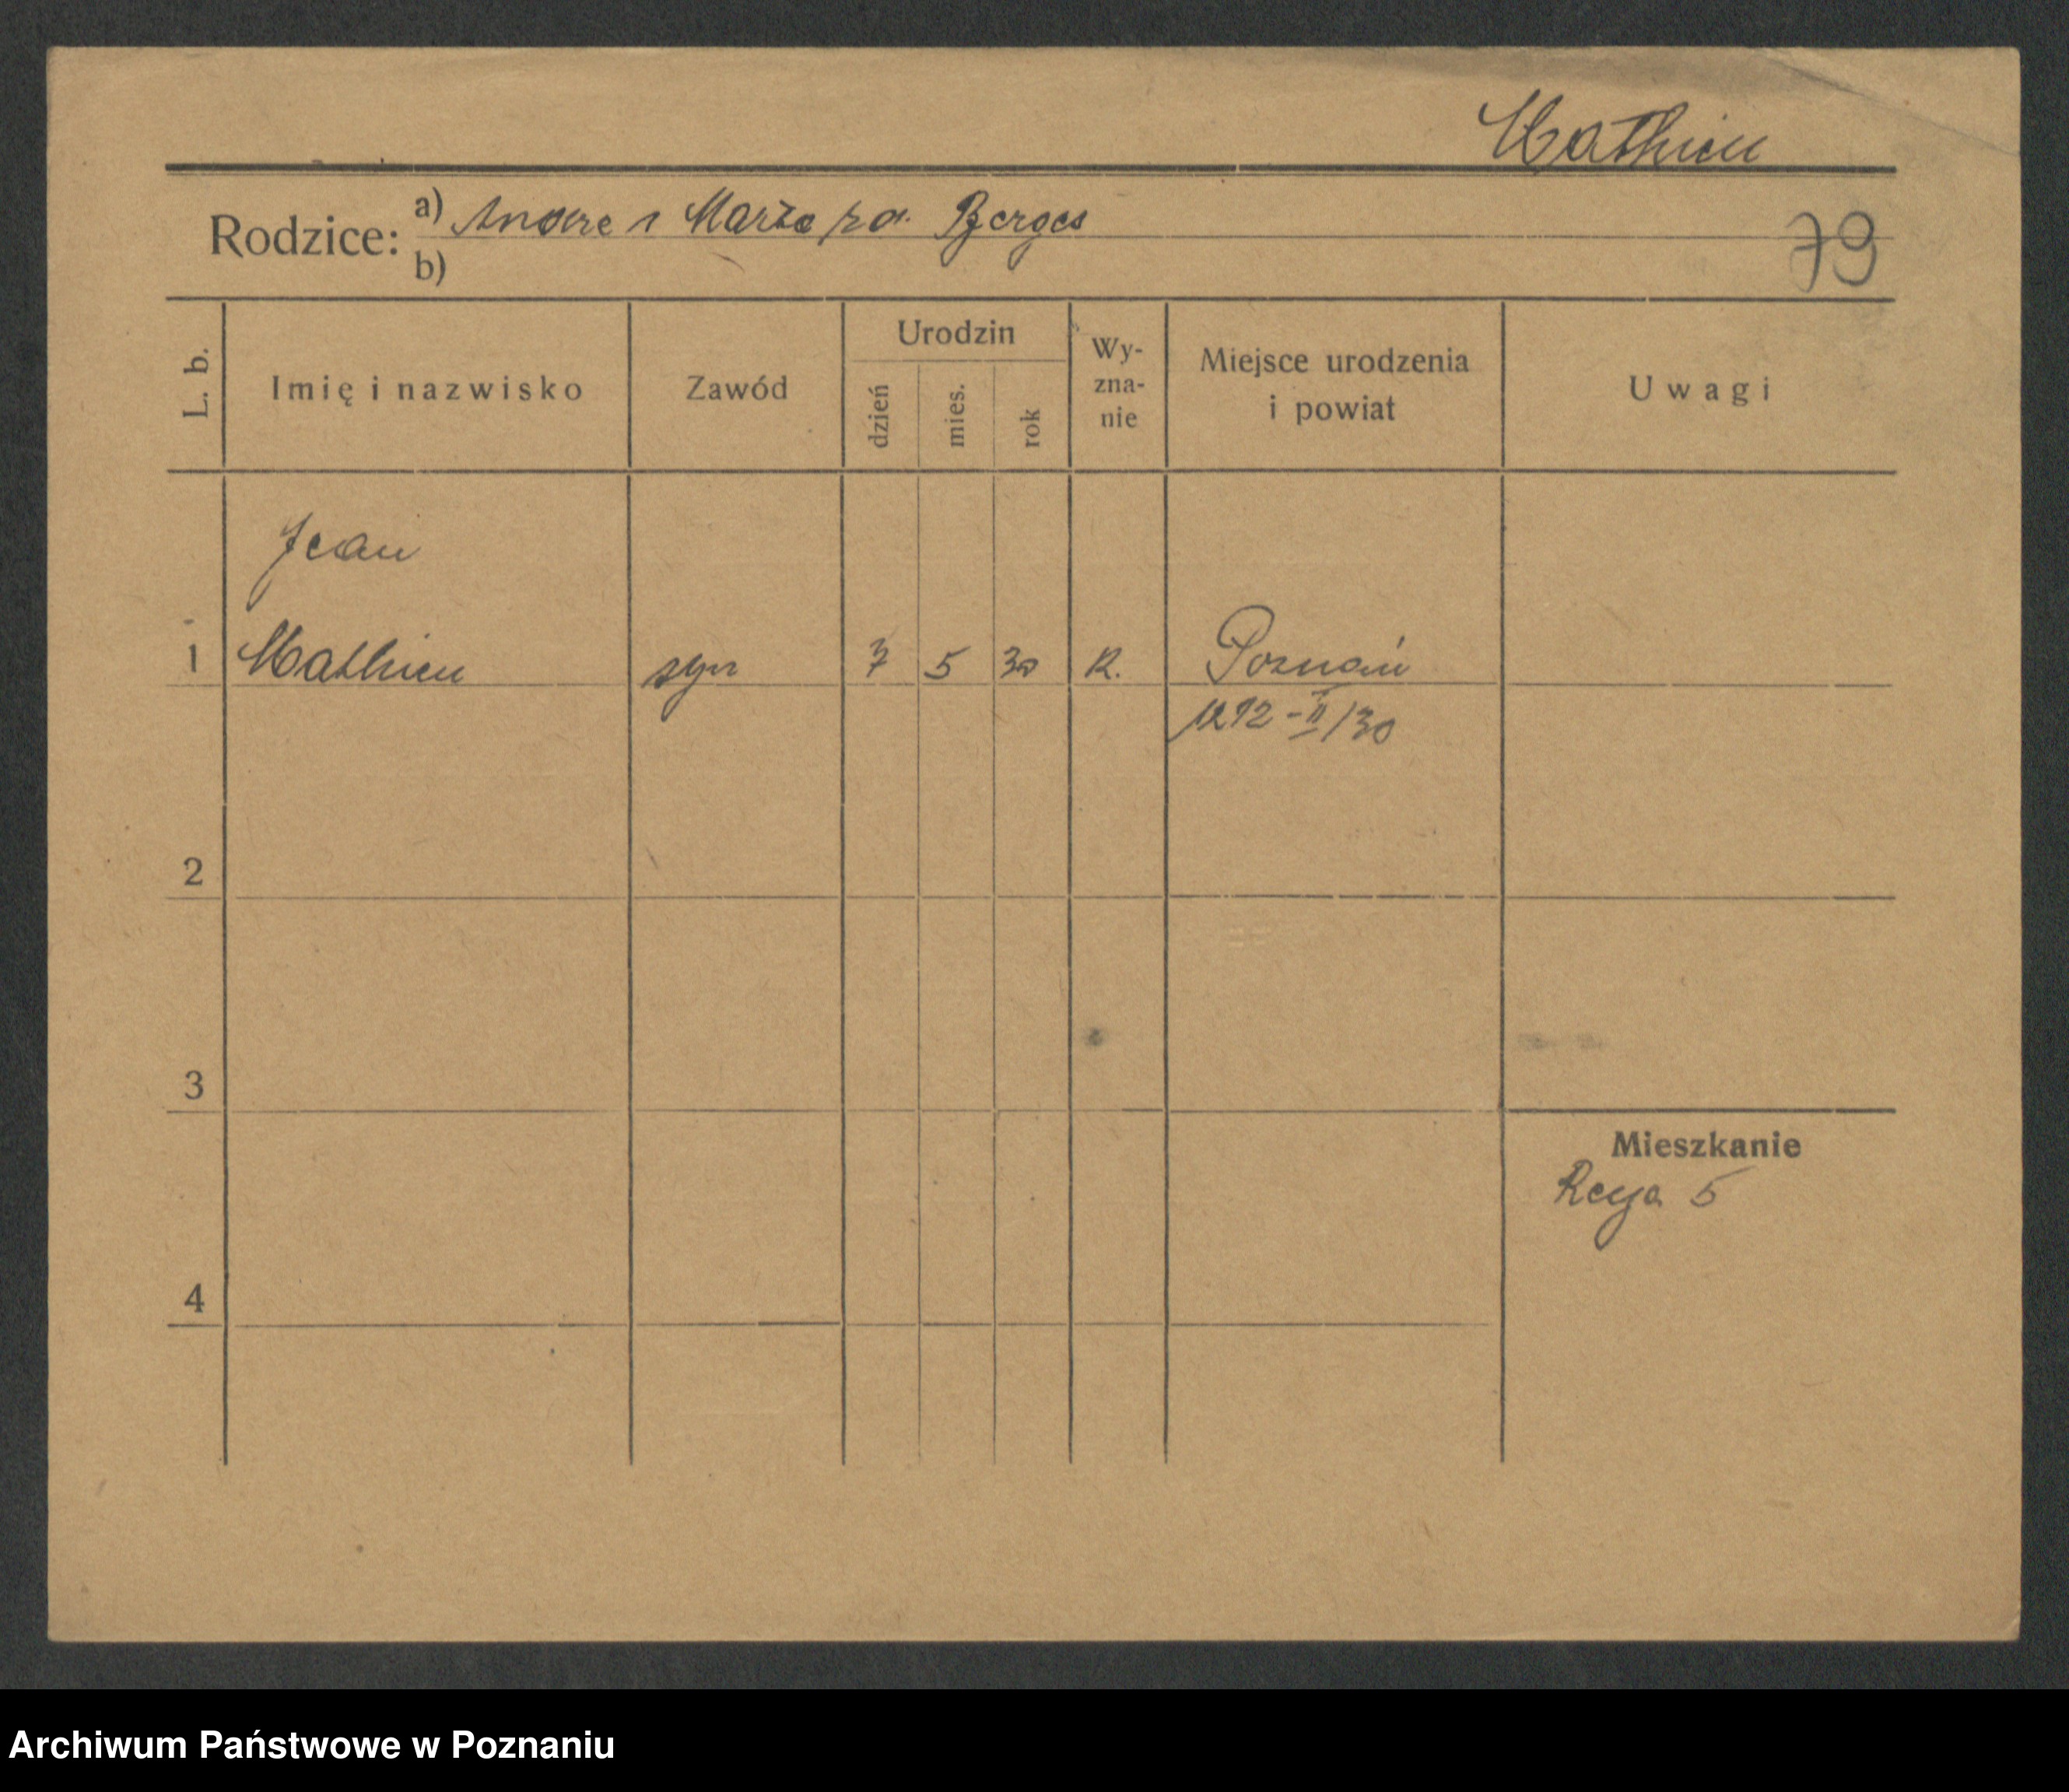 Mathieu
Rodzice: a) Andre i Marta zd. Berges
b)
79
L. b.
Imię i nazwisko
Zawód
Urodzin
dzień
mies.
rok
Wy-
zna-
nie
Miejsce urodzenia
i powiat
Uwagi
Jean
1 Mathieu syn 7 5 30 R. Poznań
1292-II/30
2
3
Mieszkanie
Reya 5
4
Archiwum Państwowe w Poznaniu